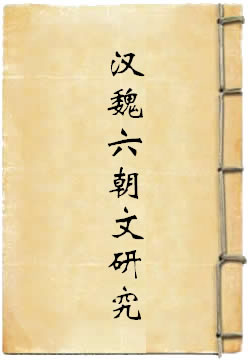 汉魏六朝文研究